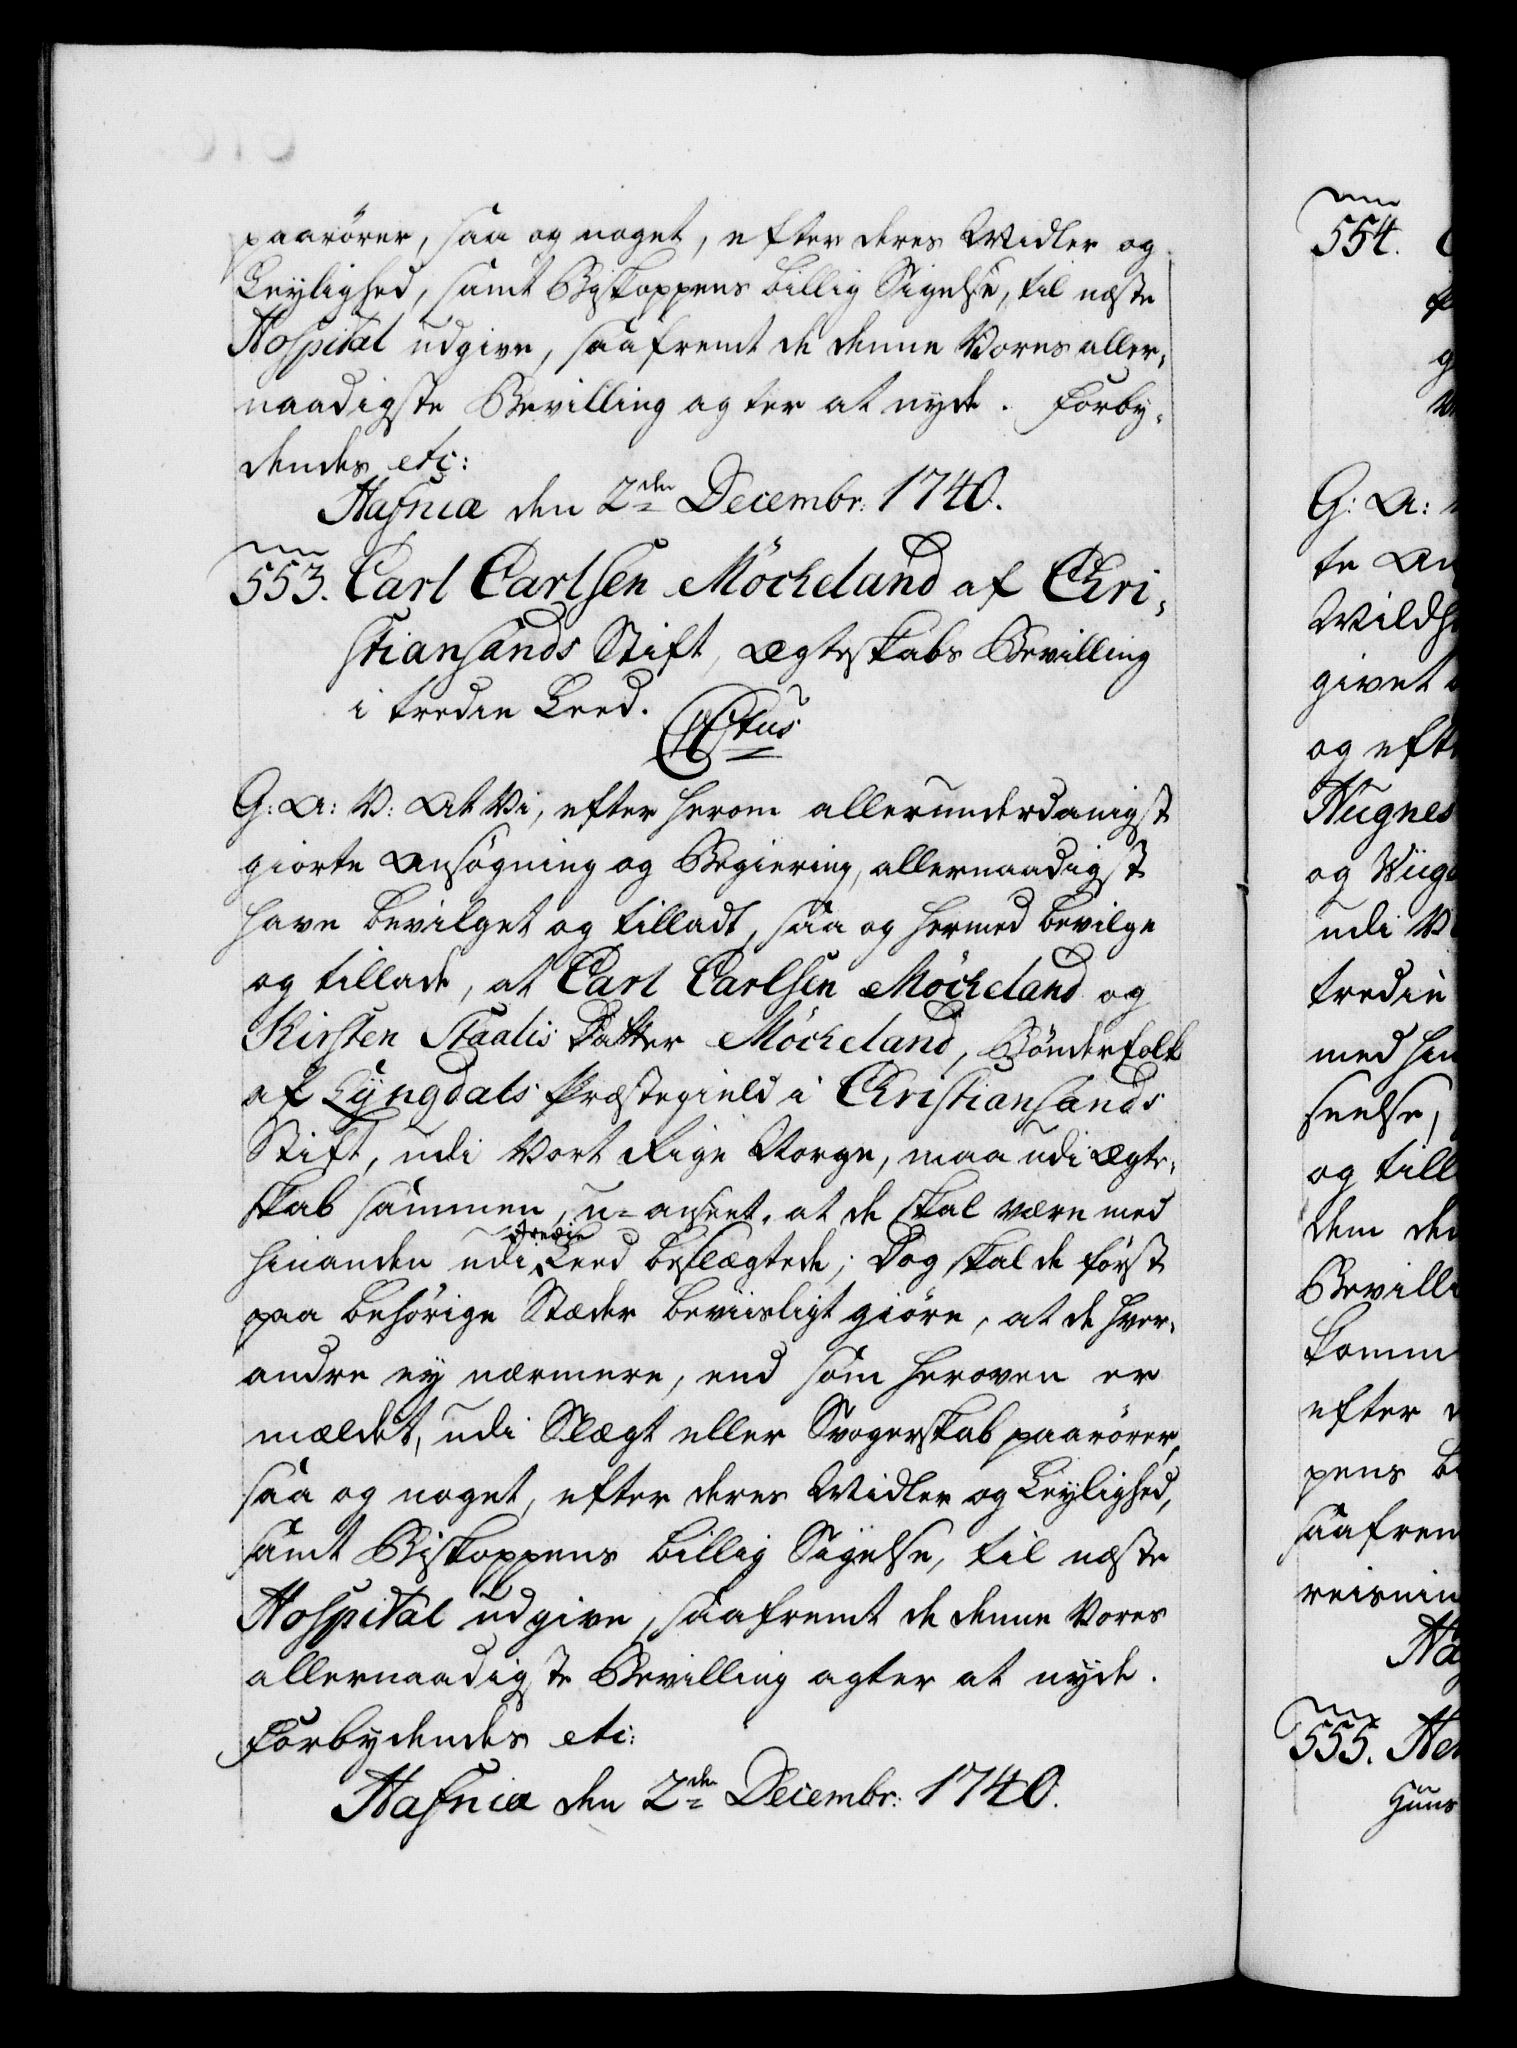 paarörer, saa og noget, efter deres Midler og
Leylighed, samt Biskoppens billig Sigelse, til næste
Hospital udgive, saafremt de denne Vores aller-
naadigste Bevilling agter at nyde. Forby-
dendes etc:
Hafniæ den 2den Decembr: 1740.
553. Carl Carlsen Möcheland af Chri-
stiansands Stift, Ægteskabs Bevilling
i tredie Leed.
Cttus
G: A: V: At Vi, efter herom allerunderdanigst
giorte Ansögning og Begiering, allernaadigst
have bevilget og tilladt, saa og hermed bevilge
og tillade, at Carl Carlsen Möcheland og
Kirsten Staalis Datter Möcheland, Bönderfolk
af Lyngdals Præstegield i Christiansands
Stift, udi Vort Rige Norge, maa udi Ægte-
skab sammen, u-anseet, at de skal være med
hinanden udi tredie Leed beslægtede; Dog skal de först
paa behörige Stæder beviisligt giöre, at de hver-
andre ey nærmere, end som heroven er
mældet, udi Slægt eller Svogerskab paarörer,
saa og noget, efter deres Midler og Leylighed,
samt Biskoppens billig Sigelse, til næste
Hospital udgive, saafremt de denne Vores
allernaadigste Bevilling agter at nyde.
Forbydendes etc:
Hafniæ den 2den Decembr: 1740.
554.
G: A:
te An
Wildh
givet
og eft
Hugnes
og Viig
udi V
tredie
med hin
seelse,
og till
dem de
Bevilli
komm
efter d
pens b
saafrem
reisnin
Ha
555. He
Huus